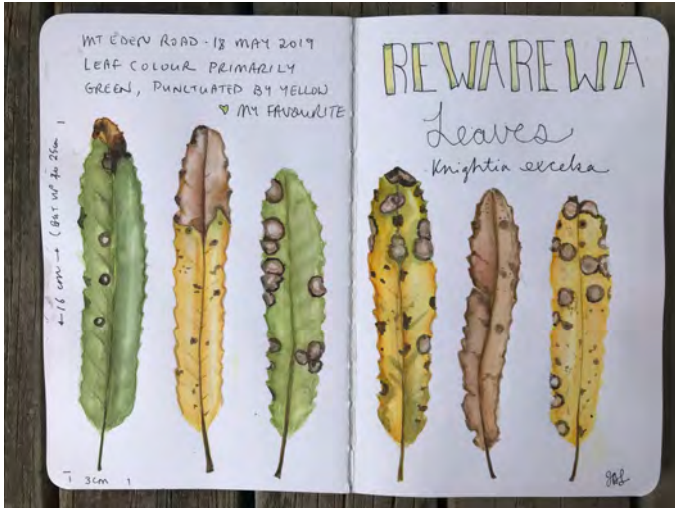 MT EDEN ROAD - 18 MAY 2019
LEAF COLOUR PRIMARILY
GREEN, PUNCTUATED BY YELLOW
♥ MY FAVOURITE
← 16 cm → (BUT UP TO 25cm)
3cm
REWAREWA
Leaves
Knightia excelsa